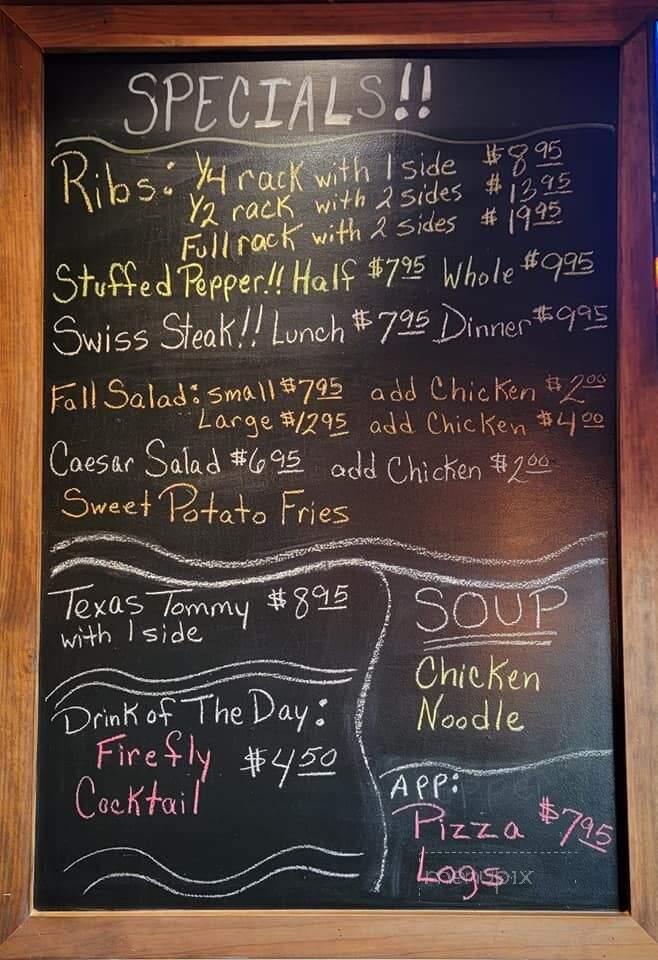 SPECIALS!!
Ribs: 1/4 rack with 1 side $8.95
1/2 rack with 2 sides $13.95
Full rack with 2 sides $19.95
Stuffed Pepper!! Half $7.95 Whole $9.95
Swiss Steak!! Lunch $7.95 Dinner $9.95
Fall Salad: small $7.95 add Chicken $2.00
Large $12.95 add Chicken $4.00
Caesar Salad $6.95 add Chicken $2.00
Sweet Potato Fries
Texas Tommy $8.95
with 1 side
Drink of The Day:
Firefly $4.50
Cocktail
SOUP
Chicken
Noodle
App:
Pizza $7.95
Logs
menupix